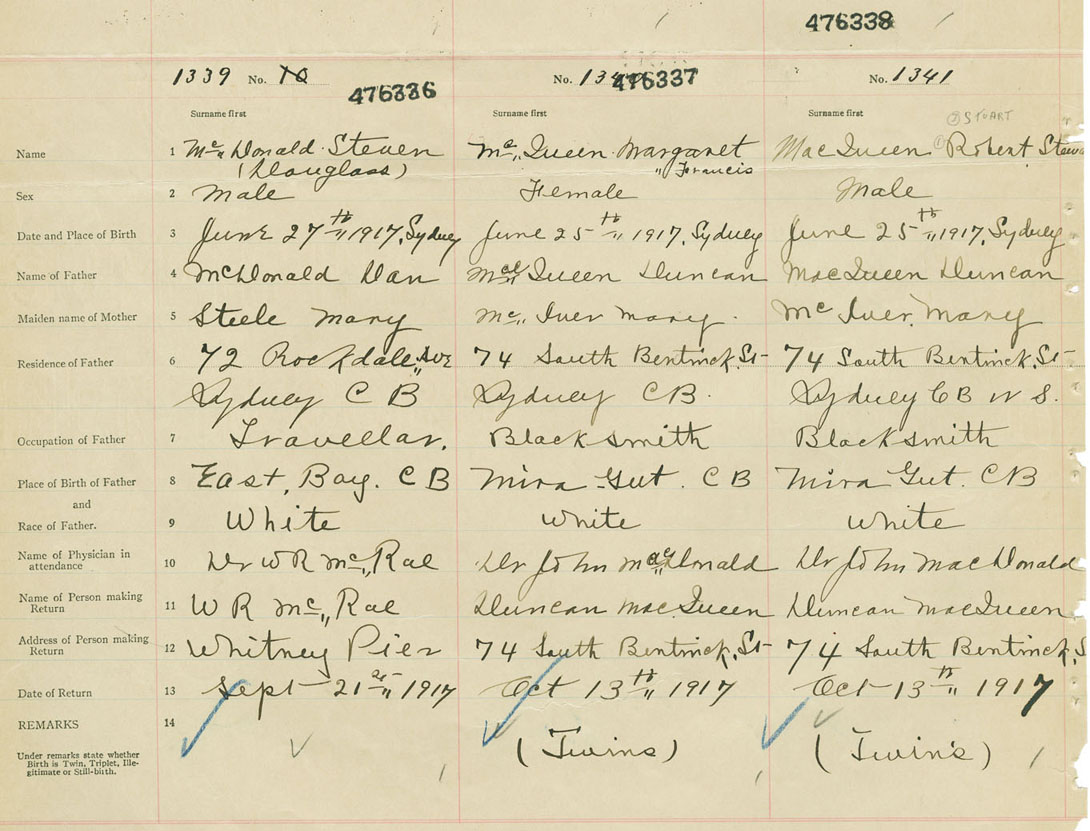 476338
1339 No. 10 476336
No. 1340 476337
No. 1341
Surname first
Surname first
Surname first
② STUART
Name 1 McDonald Steven Mc Queen Margaret MacQueen ① Robert
(Douglass) " Francis
Sex 2 Male Female Male
Date and Place of Birth 3 June 27th 1917, Sydney June 25th 1917, Sydney June 25th 1917, Sydney
Name of Father 4 McDonald Dan Queen Duncan MacQueen Duncan
Maiden name of Mother 5 Steele Mary Mc Iver Mary. Mc Iver, Mary
Residence of Father 6 72 Rockdale, Ave 74 South Bentinck, St 74 South Bentinck, St
Sydney C B Sydney CB. Sydney CB N S.
Occupation of Father 7 Travellar, Blacksmith Blacksmith
Place of Birth of Father 8 East, Bay. C B Mira Gut. C B Mira Gut. C B
and
Race of Father. 9 White White White
Name of Physician in
attendance 10 Dr W R Mc, Rae Dr John MacDonald Dr John MacDonald
Name of Person making
Return 11 W R Mc, Rae Duncan MacQueen Duncan MacQueen
Address of Person making
Return 12 Whitney Pier 74 South Bentinck, St 74 South Bentinck, S
Date of Return 13 Sept 21st 1917 Oct 13th 1917 Oct 13th 1917
REMARKS 14
(Twins) (Twin's)
Under remarks state whether
Birth is Twin, Triplet, Ille-
gitimate or Still-birth.